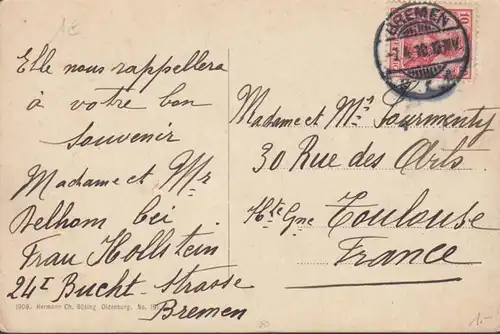 1€
Elle nous rappellera
à votre bon
souvenir
Madame et Mr
Delhom bei
Frau Hollstein
24I Bucht-Strasse
Bremen
1909. Hermann Ch. Büsing Oldenburg. No.
BREMEN
10
Madame et Mr Sourmenty
30 Rue des Arts
Hte Gne Toulouse
France